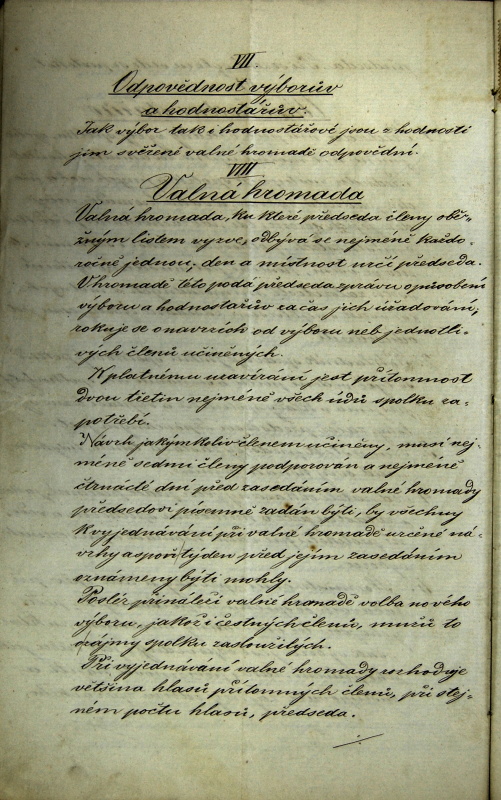 VII.
Odpovědnost výborův
a hodnostářův.
Jak výbor tak i hodnostářové jsou z hodnosti
jim svěřené valné hromadě odpovědni.
VIII
Valná hromada
Valná hromada, ku které předseda členy oběž-
žným listem vyzve, odbývá se nejméně každo-
ročně jednou; den a místnost určí předseda.
V hromadě této podá předseda zprávu o působení
výboru a hodnostářův za čas jich úřadování,
rokuje se o navrzích od výboru neb jednotli-
vých členů učiněných.
K platnému uzavírání jest přítomnost
dvou třetin nejméně všech údů spolku za-
potřebí.
Návrh jakýmkoliv členem učiněný, musí nej-
méně sedmi členy podporován a nejméně
čtrnácté dní před zasedáním valné hromady
předsedovi písemně zadán býti, by všechny
k vyjednávání při valné hromadě určené ná-
vrhy aspoň týden před jejím zasedáním
oznámeny býti mohly.
Posléz přináleží valné hromadě volba nového
výboru, jakož i čestných členů, mužů to
o zájmy spolku zasloužilých.
Při vyjednávání valné hromady rozhoduje
většina hlasů přítomných členů, při stej-
ném počtu hlasů, předseda.